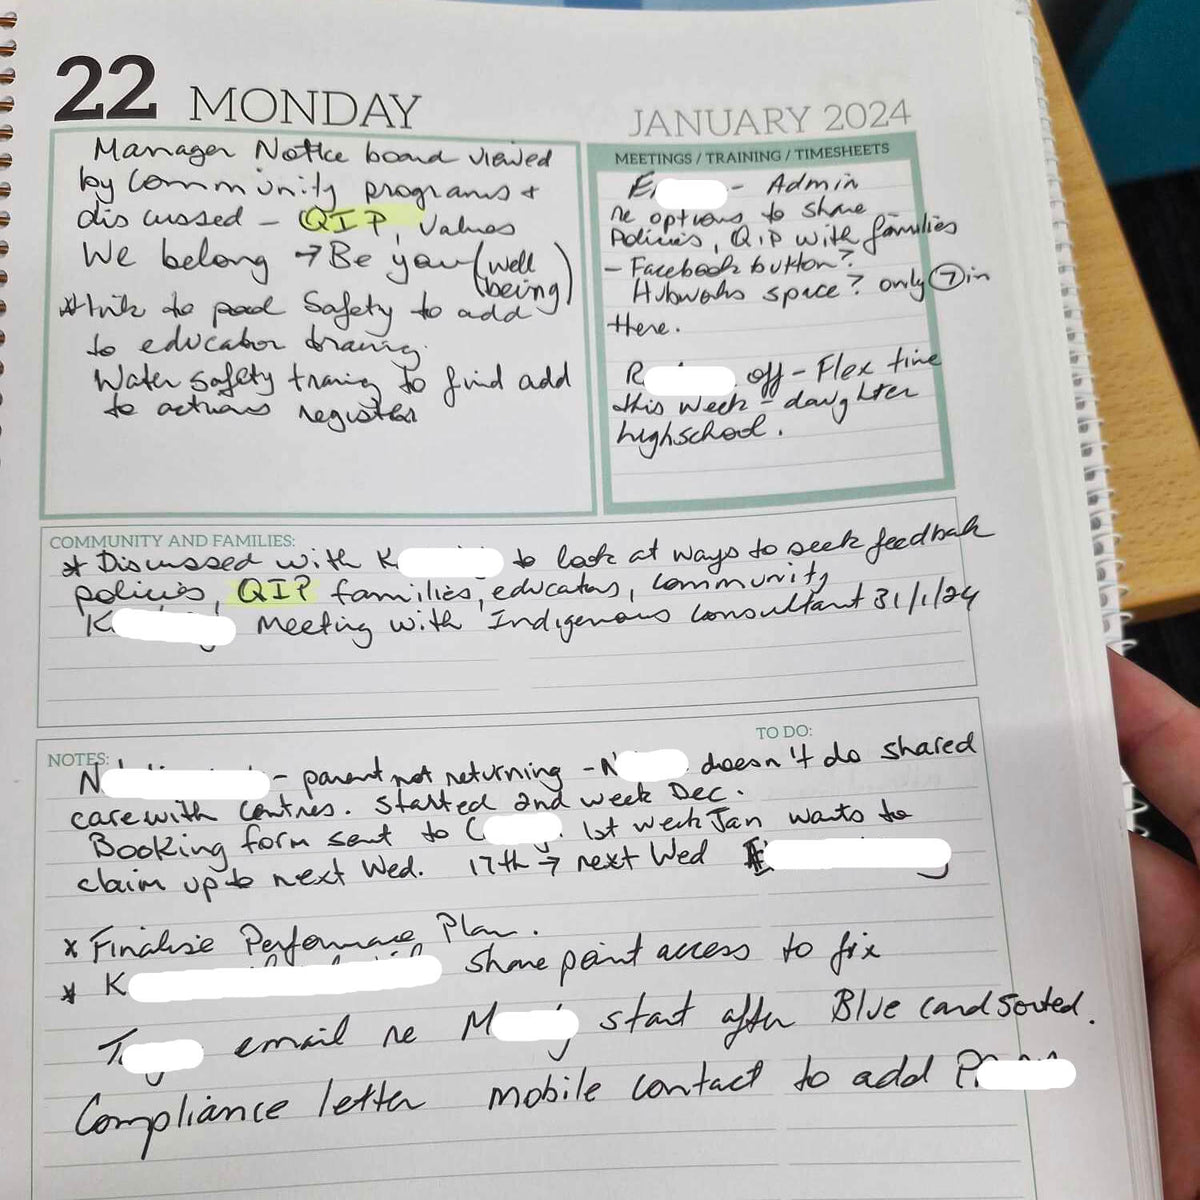 22 MONDAY
JANUARY 2024
Manager Notice board viewed
by Community programs +
discussed - QIP, Values
We belong → Be you (well
being)
*link to pool Safety to add
to educator training.
Water safety training to find add
to actions register
MEETINGS / TRAINING / TIMESHEETS
E - Admin
re options to share
Policies, QIP with families
- Facebook button?
Hubworks space? only 7 in
there.
R off - Flex time
this week - daughter
highschool.
COMMUNITY AND FAMILIES:
* Discussed with K to look at ways to seek feedback
policies, QIP families, educators, community
K Meeting with Indigenous Consultant 31/1/24
NOTES:
TO DO:
N - parent not returning - N doesn't do shared
care with centres. Started 2nd week Dec.
Booking form sent to C 1st week Jan wants to
claim up to next Wed. 17th → next Wed
x Finalise Performance Plan.
* K Share point access to fix
T email re M start after Blue card sorted.
Compliance letter mobile contact to add P